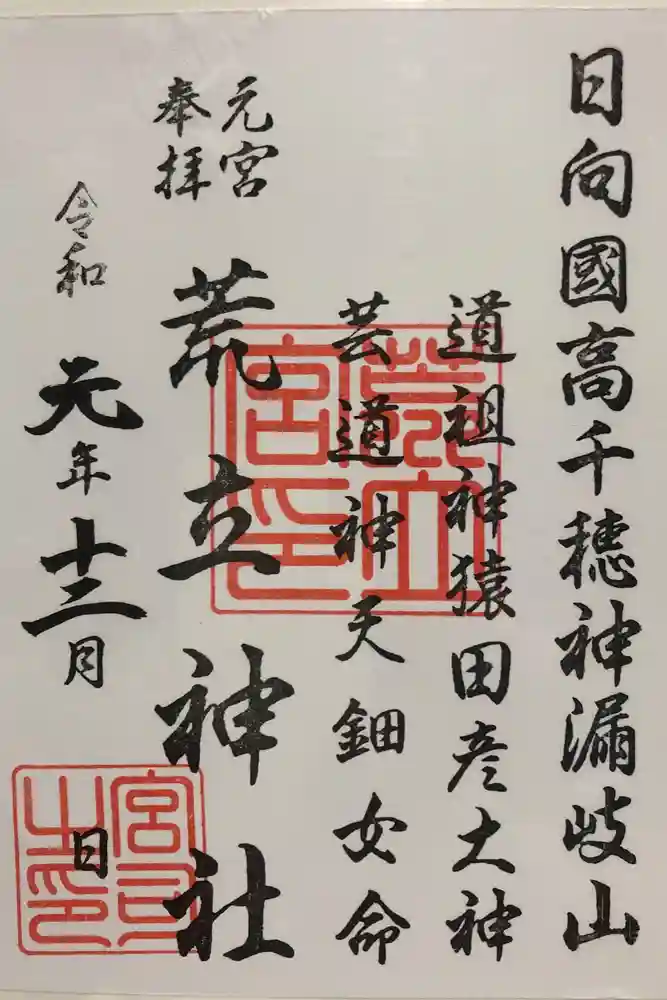 日向國高千穂神漏岐山
道祖神猿田彦大神
芸道神天鈿女命
元宮
奉拝
荒立神社
令和元年十二月日
荒立
宮印
宮司
之印